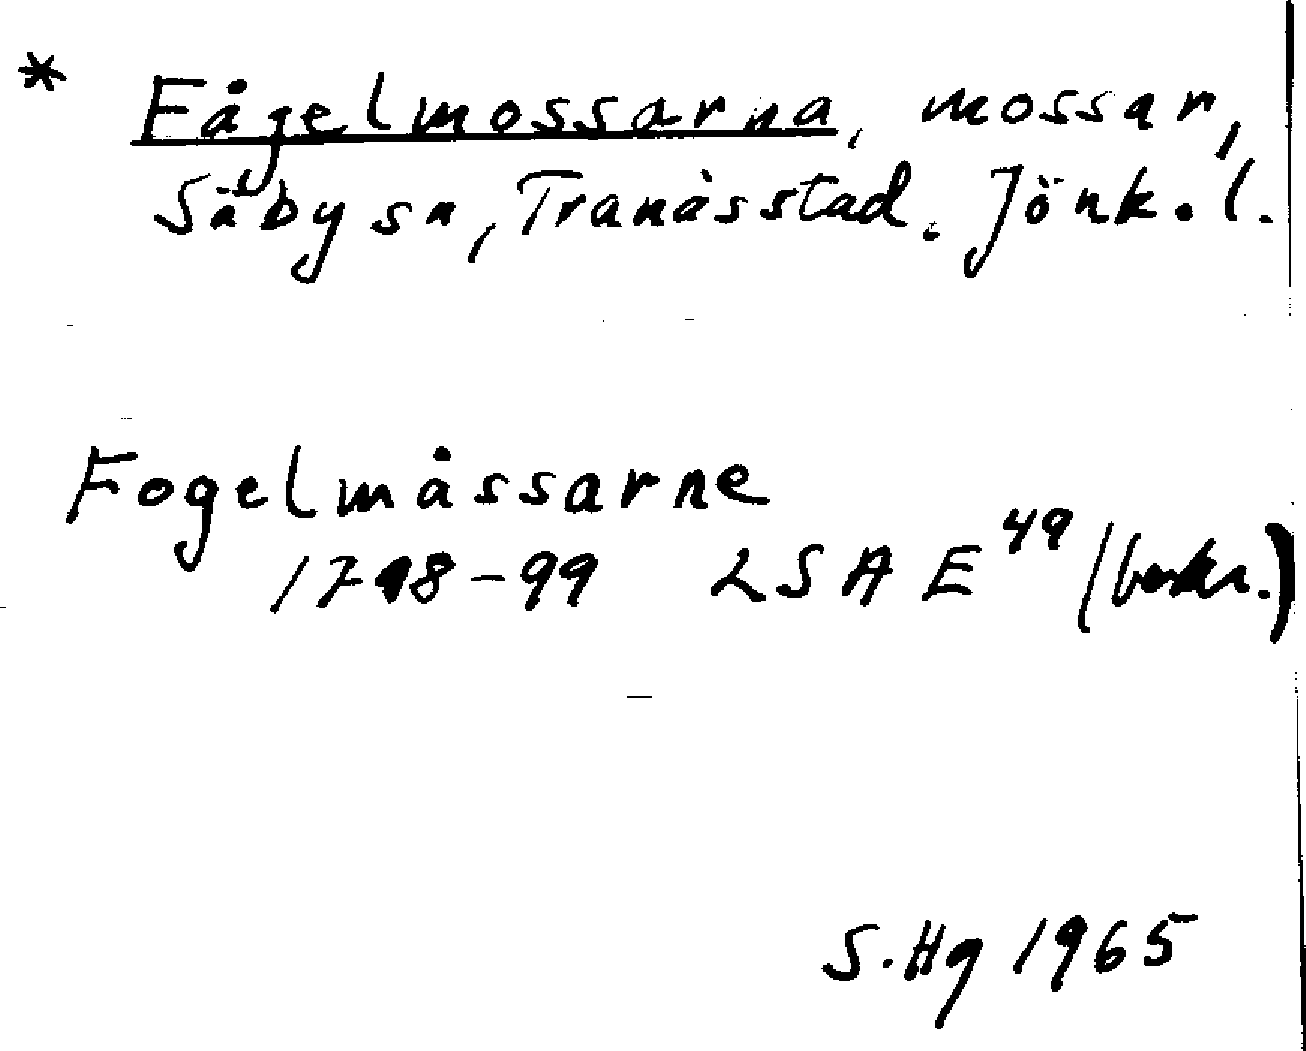 * Fågelmossarna, mossar,
Säby sn, Tranås stad. Jönk.l.
Fogelmåssarne
1798-99 LSA E 49 (beskr.)
S.Hg 1965